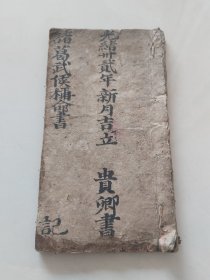 光緒卅貳年新月吉立
貴卿書
諸葛武侯稱命書
記